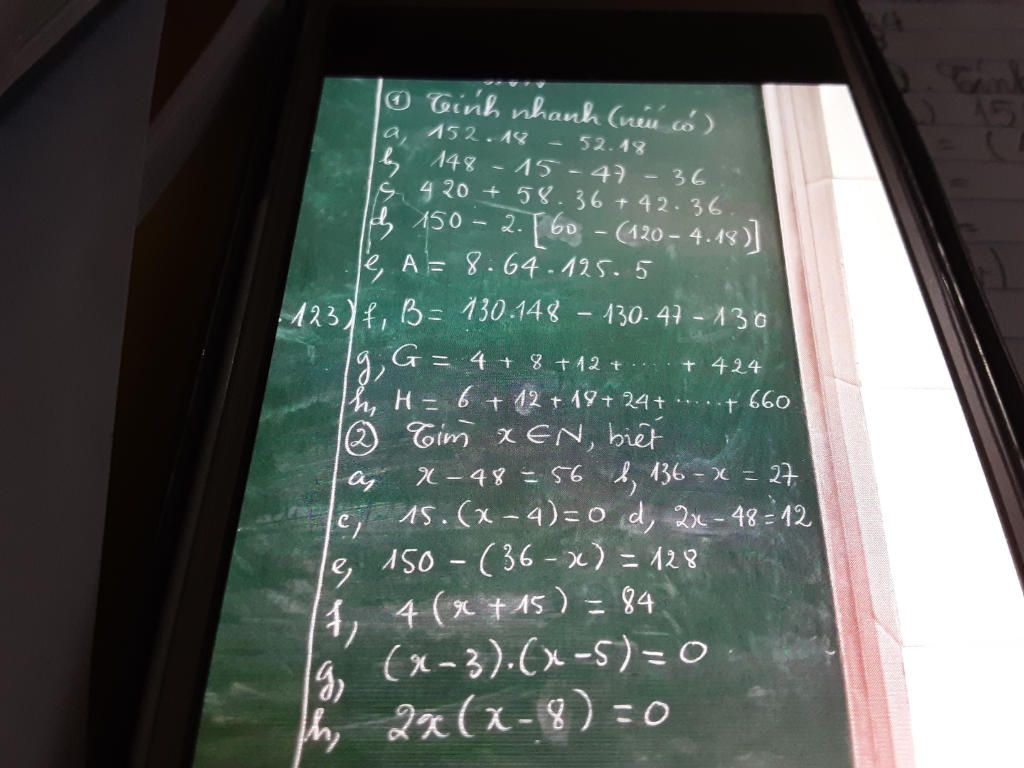 ① Tính nhanh (nếu có)
a, 152.18 - 52.18
b, 148 - 15 - 47 - 36
c, 420 + 58.36 + 42.36.
d, 150 - 2.[60 - (120 - 4.18)]
e, A = 8.64.125.5
.123) f, B = 130.148 - 130.47 - 130
g, G = 4 + 8 + 12 + ..... + 424
h, H = 6 + 12 + 18 + 24 + ..... + 660
② Tìm x ∈ N, biết
a, x - 48 = 56 b, 136 - x = 27
c, 15.(x - 4) = 0 d, 2x - 48 = 12
e, 150 - (36 - x) = 128
f, 4(x + 15) = 84
g, (x - 3).(x - 5) = 0
h, 2x(x - 8) = 0